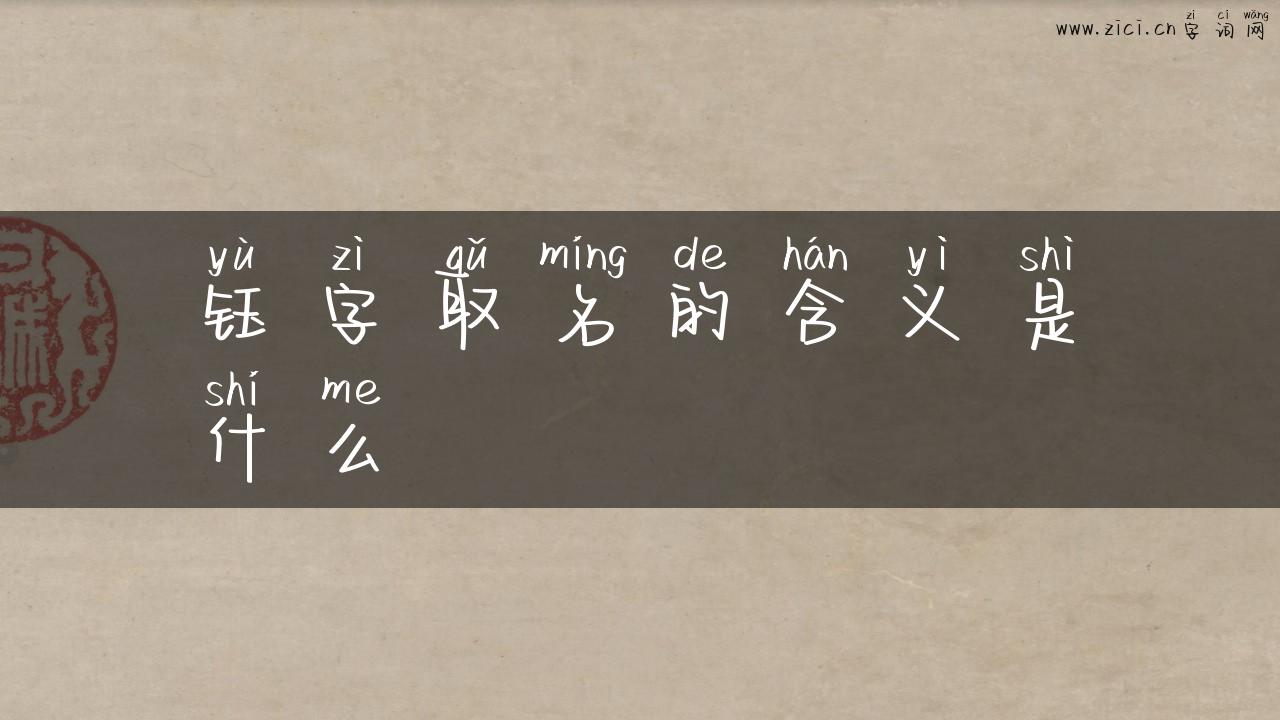 zì cí wǎng
www.zici.cn字词网
yù zì qǔ míng de hán yì shì
钰字取名的含义是
shí me
什么